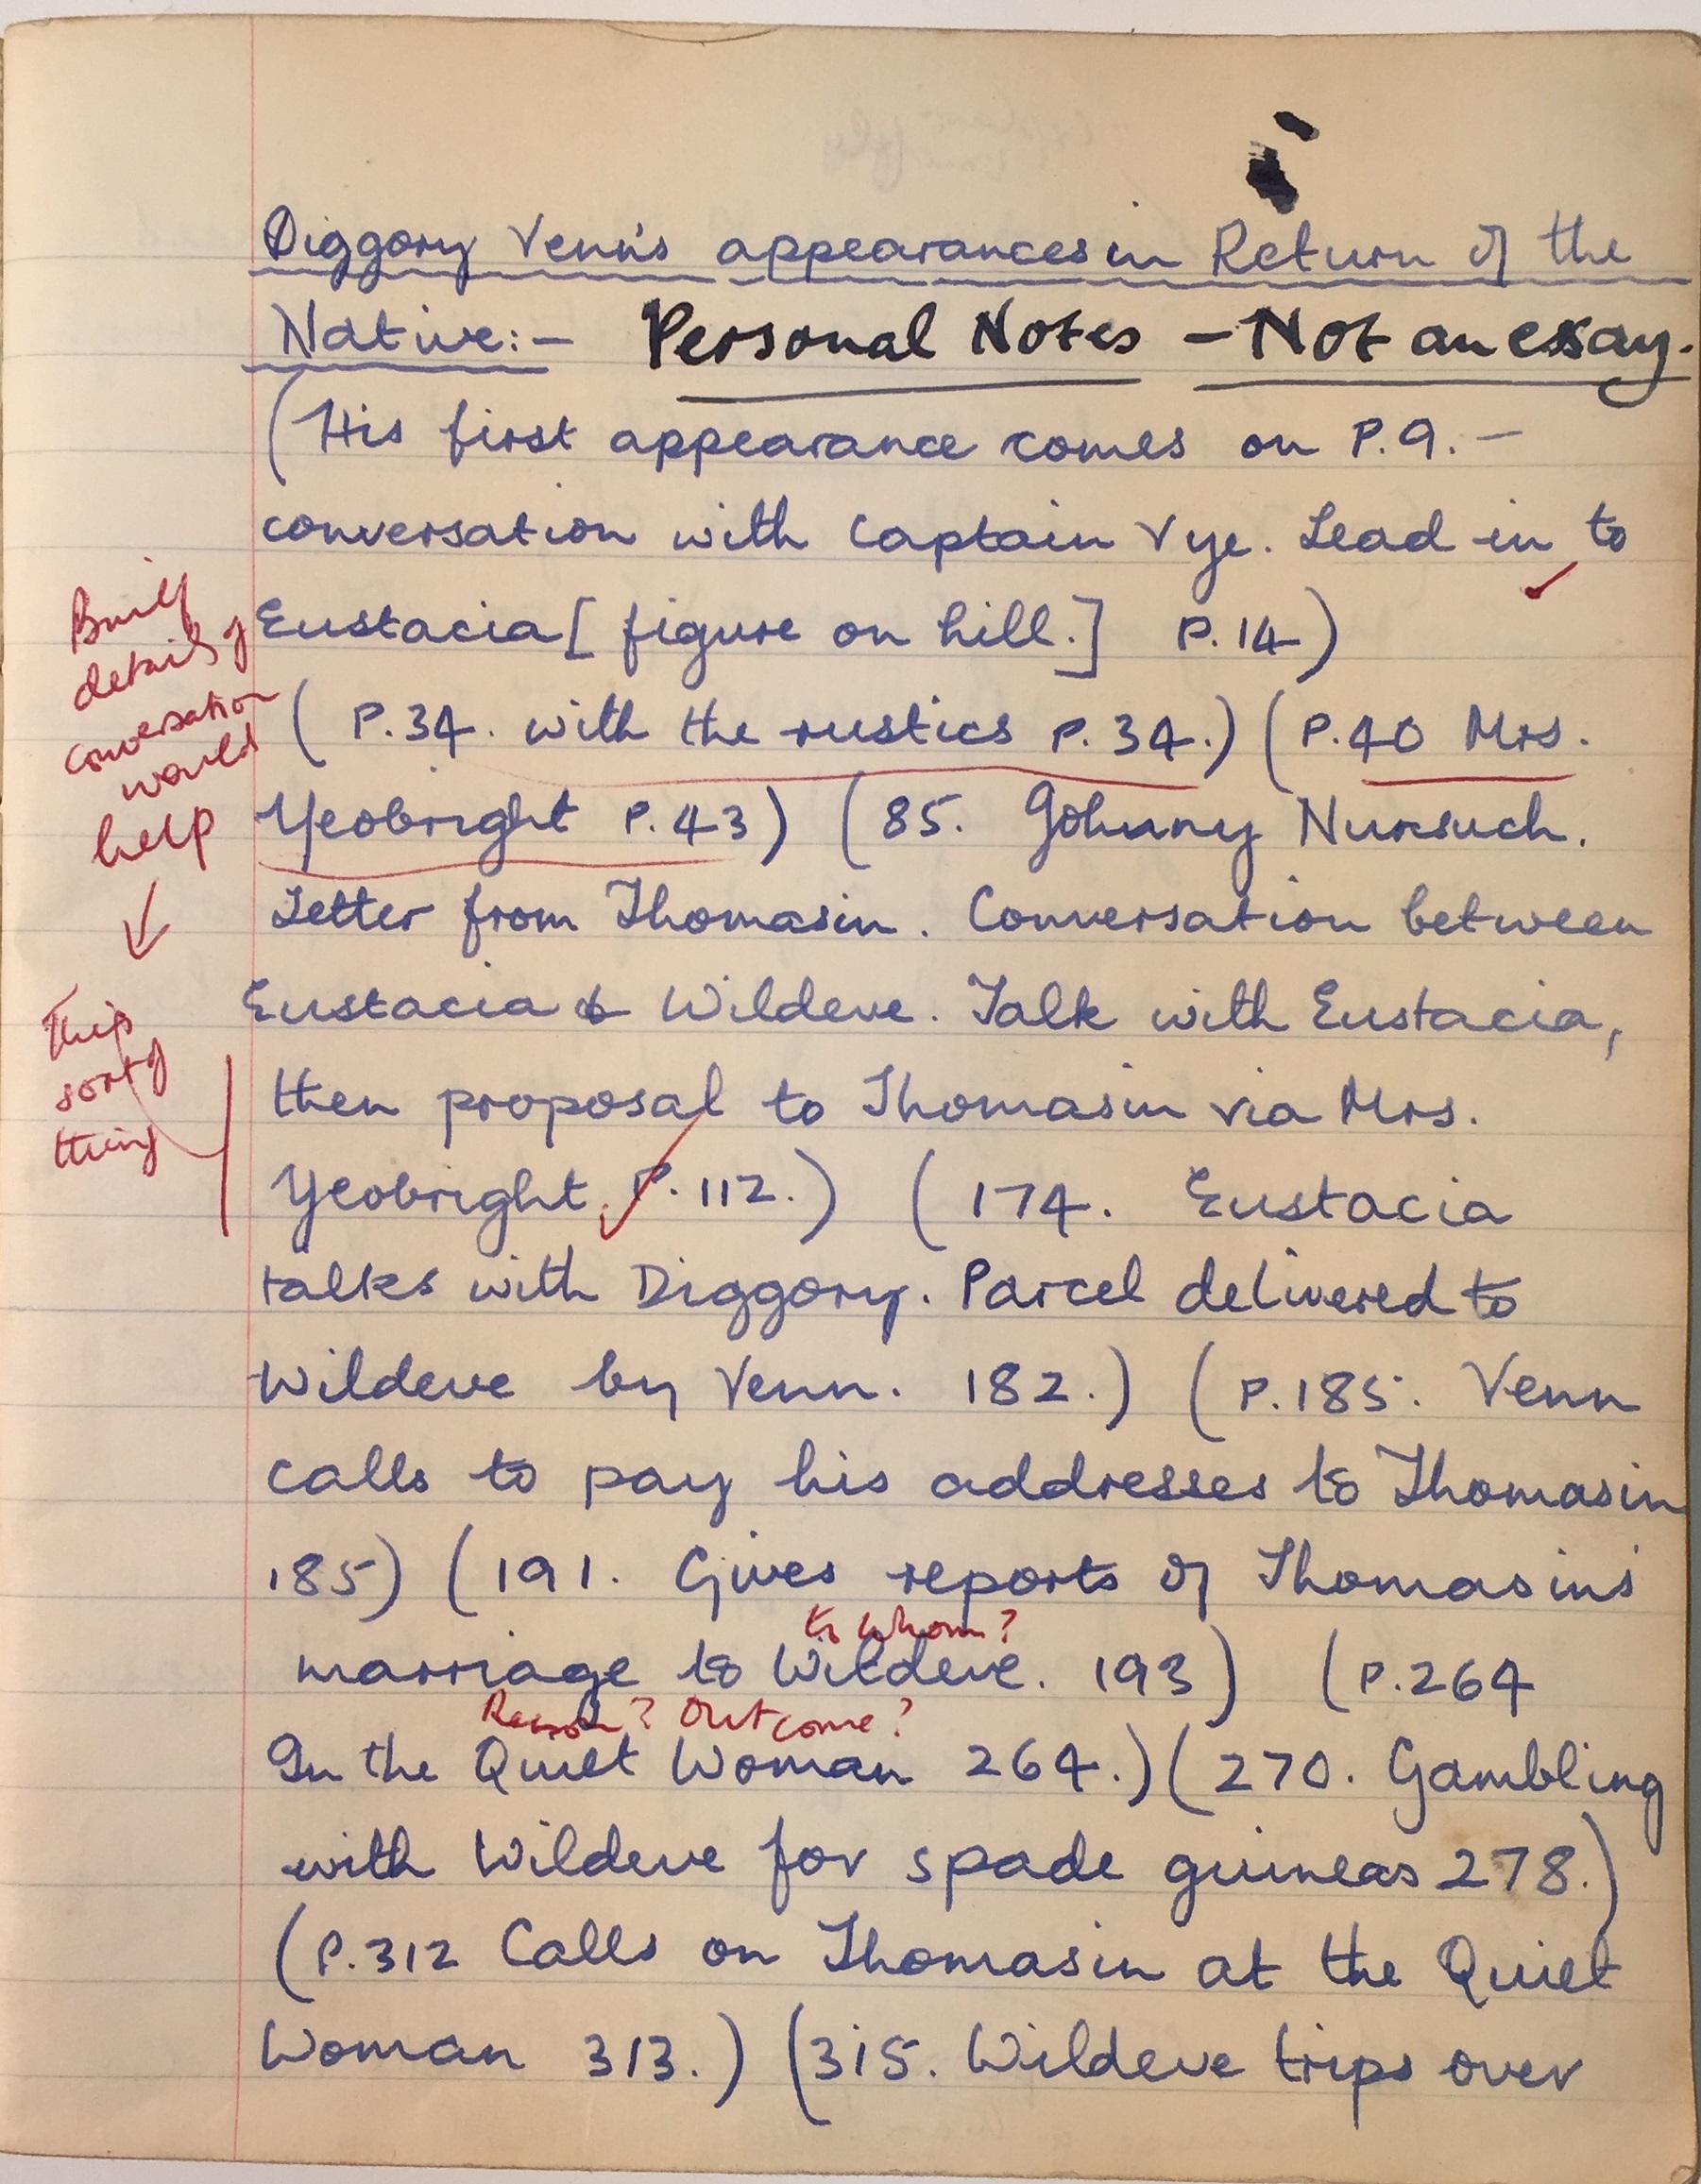 Diggory Venn's appearances in Return of the
Native:- Personal Notes - Not an essay.
(His first appearance comes on P.9. -
conversation with Captain Vye. Lead in to
Eustacia [figure on hill.] P.14)
(P.34. with the rustics P.34.) (P.40 Mrs.
Yeobright P.43) (85. Johnny Nunsuch.
Letter from Thomasin. Conversation between
Eustacia & Wildeve. Talk with Eustacia,
then proposal to Thomasin via Mrs.
Yeobright. P.112.) (174. Eustacia
talks with Diggory. Parcel delivered to
Wildeve by Venn. 182.) (P.185. Venn
calls to pay his addresses to Thomasin
185) (191. Gives reports of Thomasin's
to whom?
marriage to Wildeve. 193) (P.264
Reason? Outcome?
In the Quiet Woman 264.) (270. Gambling
with Wildeve for spade guineas 278.)
(P.312 Calls on Thomasin at the Quiet
Woman 313.) (315. Wildeve trips over
Brief
details of
conversation
would
help
This
sort of
thing